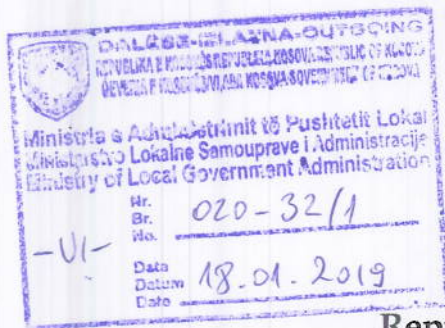 DALËSE-IZLAZNA-OUTGOING
REPUBLIKA E KOSOVËS REPUBLIKA KOSOVA REPUBLIC OF KOSOVO
QEVERIA E KOSOVËS VLADA KOSOVA GOVERNMENT OF KOSOVA
Ministria e Administrimit të Pushtetit Lokal
Ministarstvo Lokalne Samouprave i Administracije
Ministry of Local Government Administration
Nr.
Br. 020-32/1
No.
-VI-
Data
Datum 18.01.2019
Date
Rep